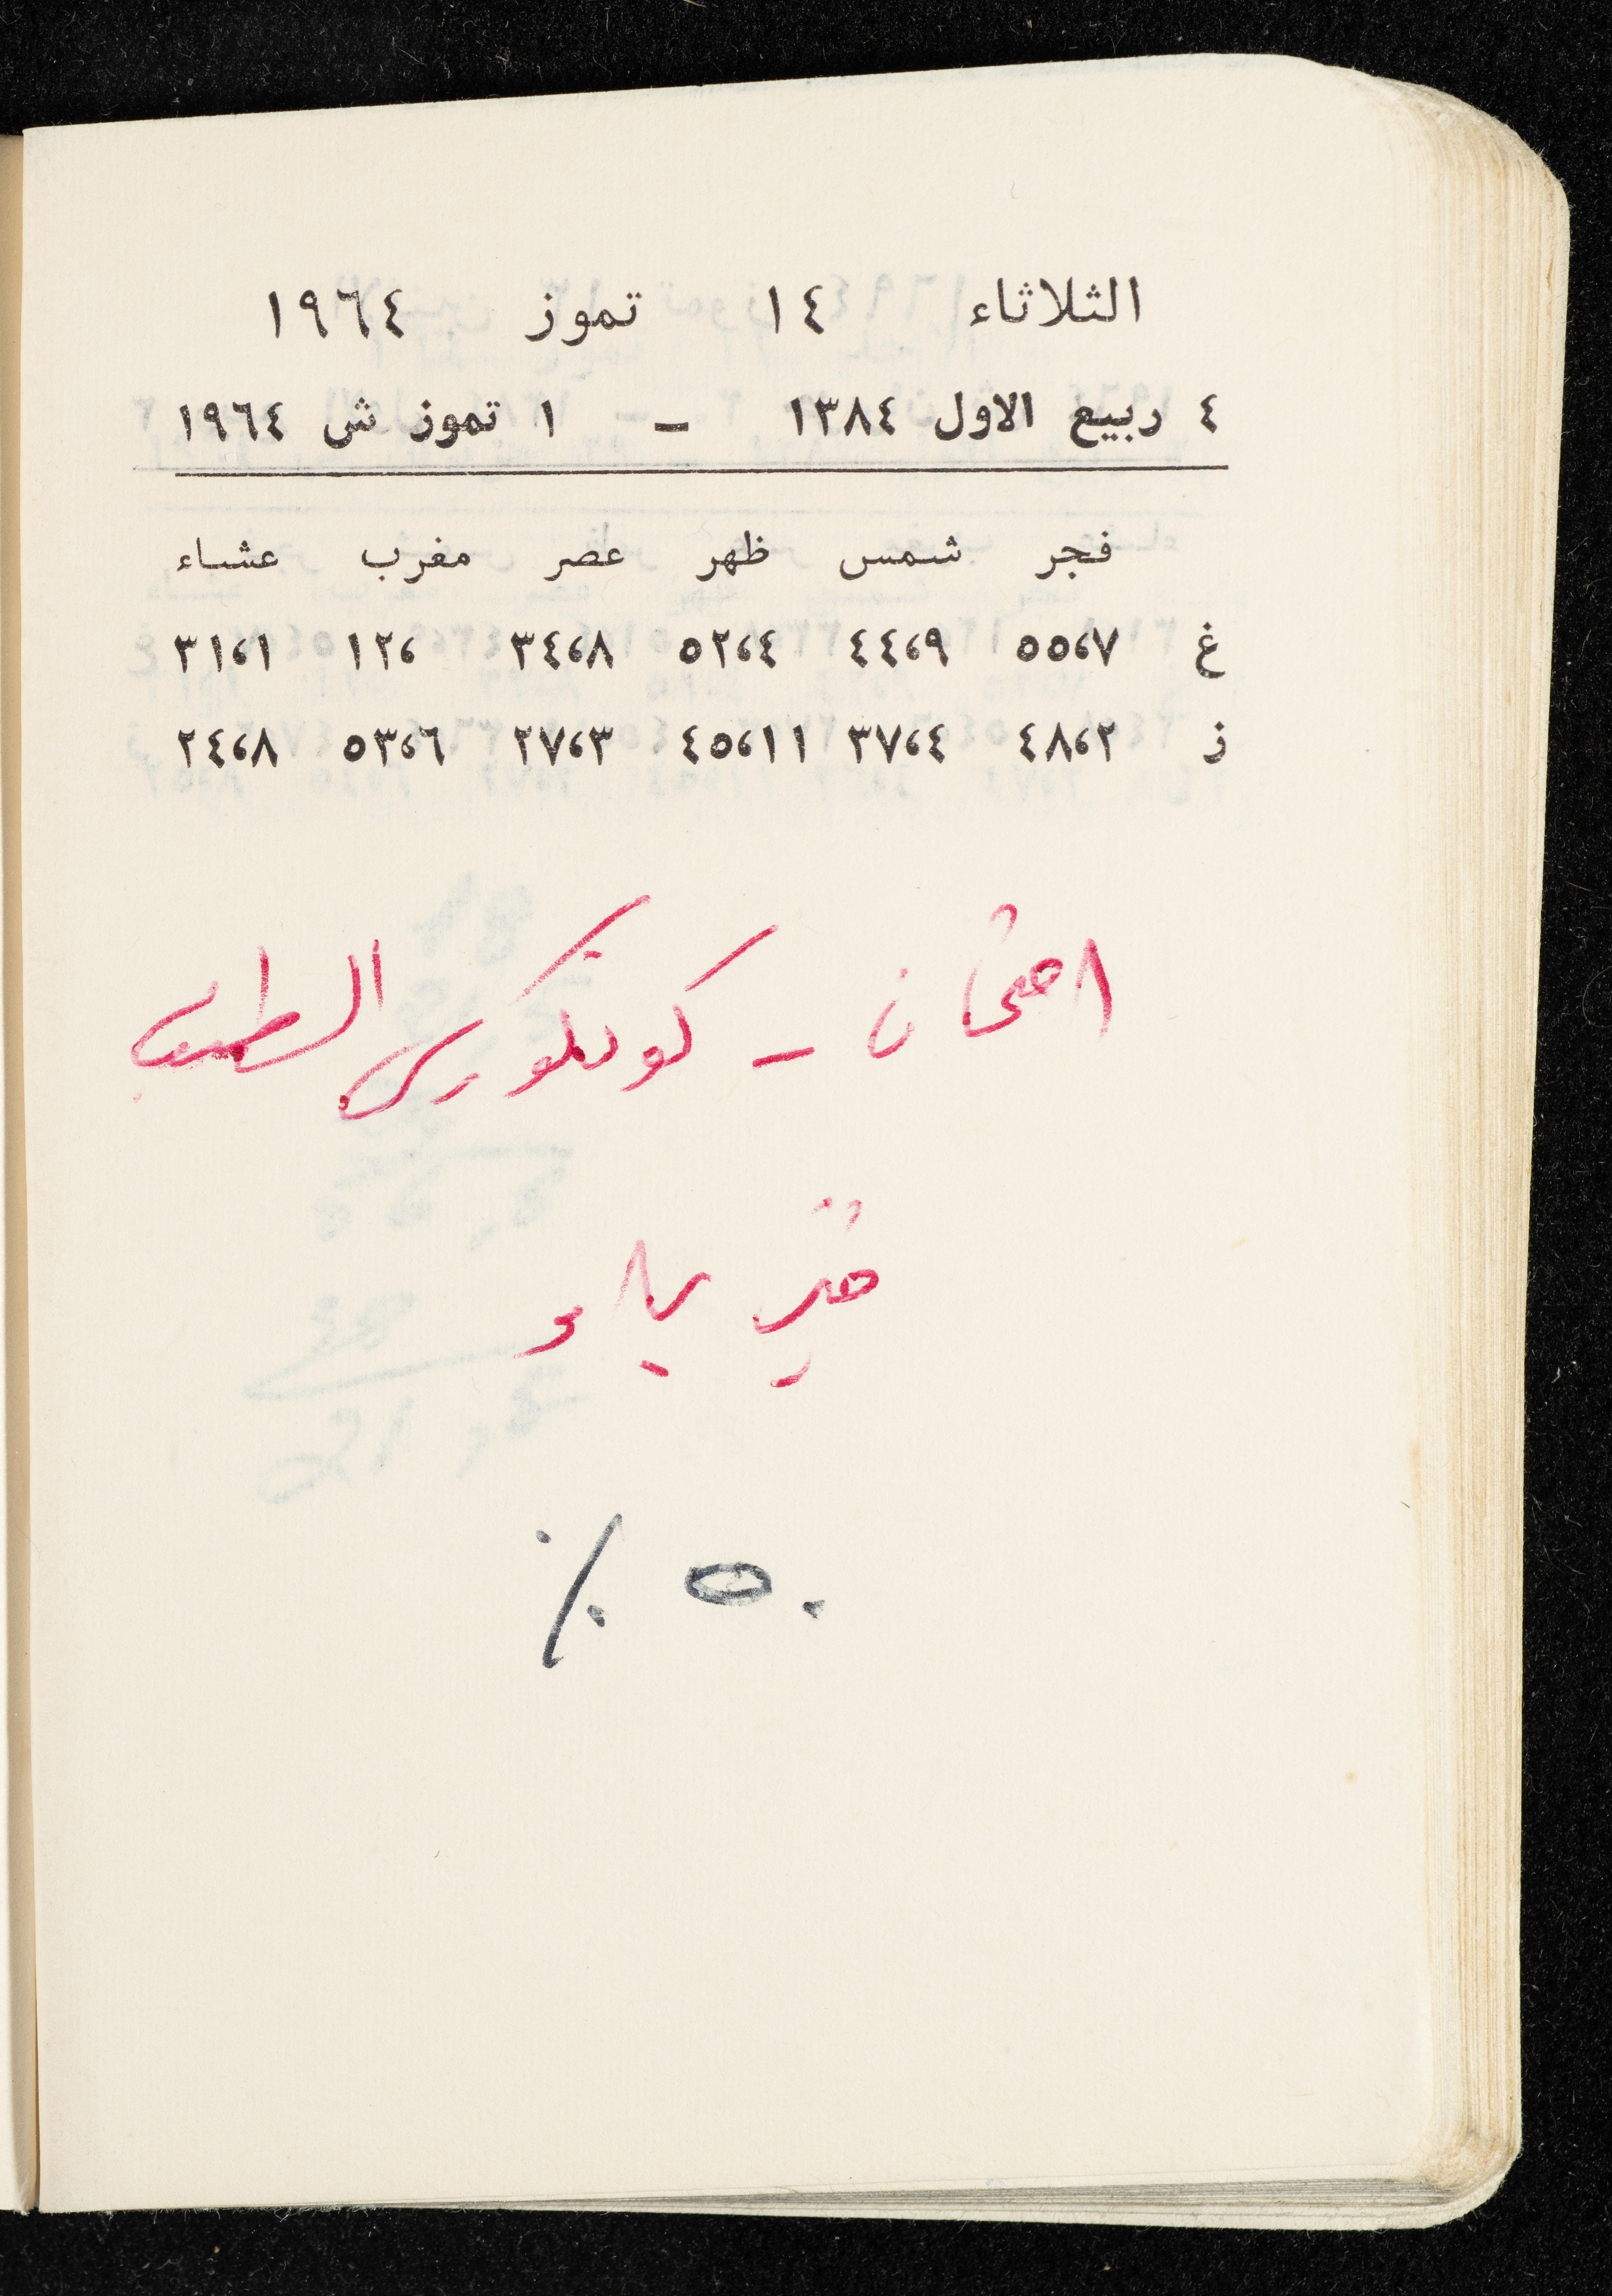 الثلاثاء ١٤ تموز ١٩٦٤
٤ ربيع الاول ١٣٨٤ - ١ تموز ش ١٩٦٤
فجر شمس ظهر عصر مغرب عشاء
غ ٥٥،٧ ٤٤،٩ ٥٢،٤ ٣٤،٨ ١٢، ٣١،١
ز ٤٨،٢ ٣٧،٤ ٤٥،١١ ٢٧،٣ ٥٣،٦ ٢٤،٨
امتحان - كونكور الطب
فيزياء
٥٠ ٪